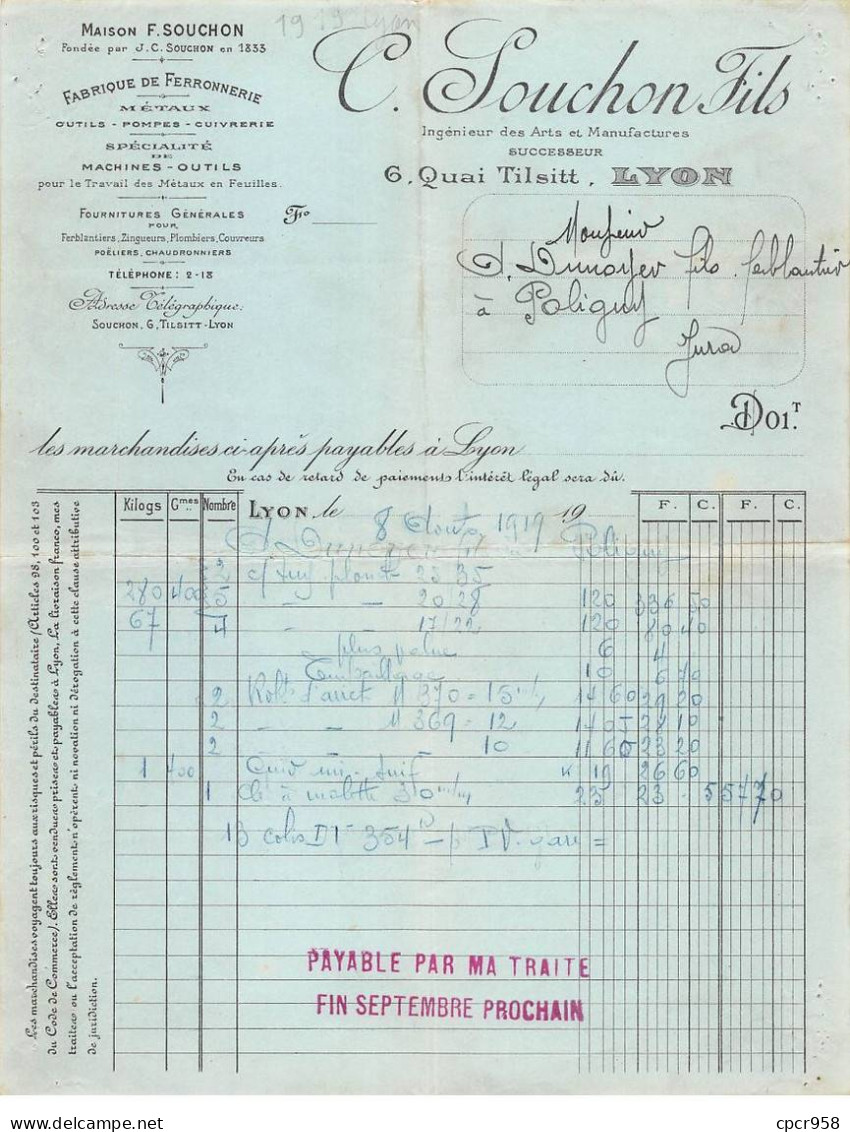 1919 Lyon
MAISON F. SOUCHON
Fondée par J.C. SOUCHON en 1833
FABRIQUE DE FERRONNERIE
MÉTAUX
OUTILS - POMPES - CUIVRERIE
SPÉCIALITÉ
DE
MACHINES - OUTILS
pour le Travail des Métaux en Feuilles.
FOURNITURES GÉNÉRALES
POUR
Ferblantiers, Zingueurs, Plombiers, Couvreurs
POÊLIERS, CHAUDRONNIERS
TÉLÉPHONE: 2-13
Adresse Télégraphique:
SOUCHON, 6, TILSITT-LYON
C. Souchon Fils
Ingénieur des Arts et Manufactures
SUCCESSEUR
6, Quai Tilsitt, LYON
Fo
Monsieur
Dunoyer fils ferblantier
à Poligny
Jura
DOI.T
les marchandises ci-après payables à Lyon
En cas de retard de paiement l'intérêt légal sera dû.
Les marchandises voyagent toujours aux risques et périls du destinataire (Articles 98, 100 et 103
du Code de Commerce). Elles sont vendues prises et payables à Lyon, La livraison franco, mes
traites ou l'acceptation de règlement n'opèrent ni novation ni dérogation à cette clause attributive
de juridiction.
Kilogs Gmes Nombre LYON le 8 Août 1919 19 F. C. F. C.
Dunoyer fils Poligny
2 23 35
280 400 5 — — 20/28 120 336 50
67 4 — — 17/22 120 80 40
plus value 6 4
Emballage 10 6 70
2 Robts d'arret N 370 = 15 m/m 14 60 29 20
2 — — N 369 = 12 140 5 28 10
2 — — 10 11 60 23 20
1 400 Cuiv mi-suif K 19 26 60
1 à molette 30 m/m 23 23 - 557 70
13 colis 354 - p gare =
PAYABLE PAR MA TRAITE
FIN SEPTEMBRE PROCHAIN
cpcr958
Delcampe.net